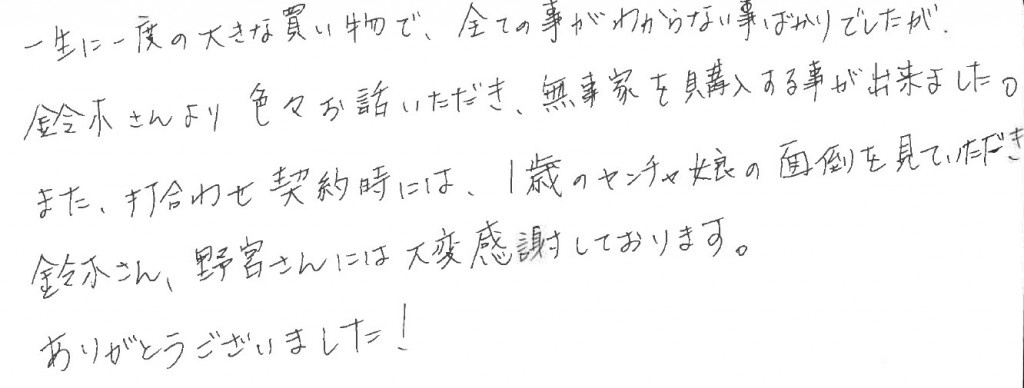 一生に一度の大きな買い物で、全ての事がわからない事ばかりでしたが、
鈴木さんより色々お話いただき、無事家を購入する事が出来ました。
また、打合わせ契約時には、1歳のヤンチャ娘の面倒を見ていただき
鈴木さん、野宮さんには大変感謝しております。
ありがとうございました!